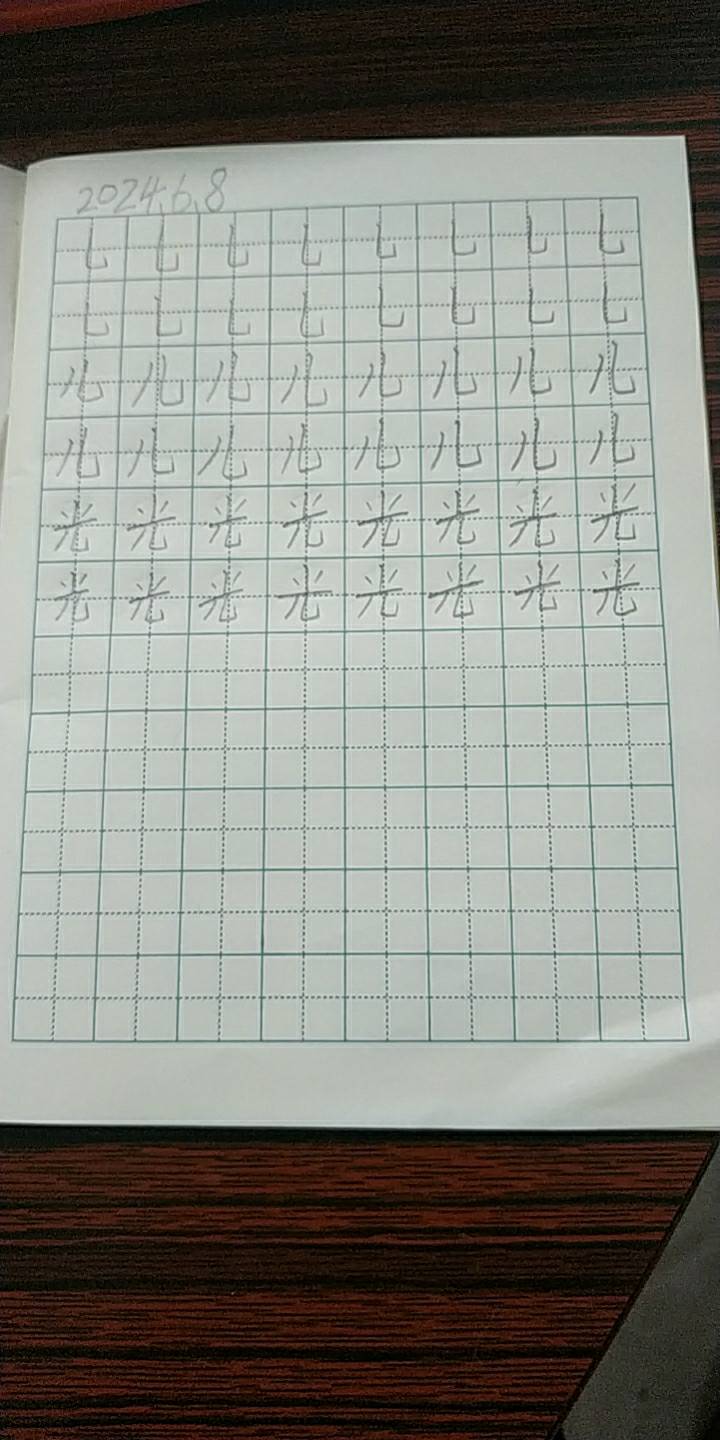 2024.6.8
乚 乚 乚 乚 乚 乚 乚 乚
乚 乚 乚 乚 乚 乚 乚 乚
儿 儿 儿 儿 儿 儿 儿 儿
儿 儿 儿 儿 儿 儿 儿 儿
光 光 光 光 光 光 光 光
光 光 光 光 光 光 光 光